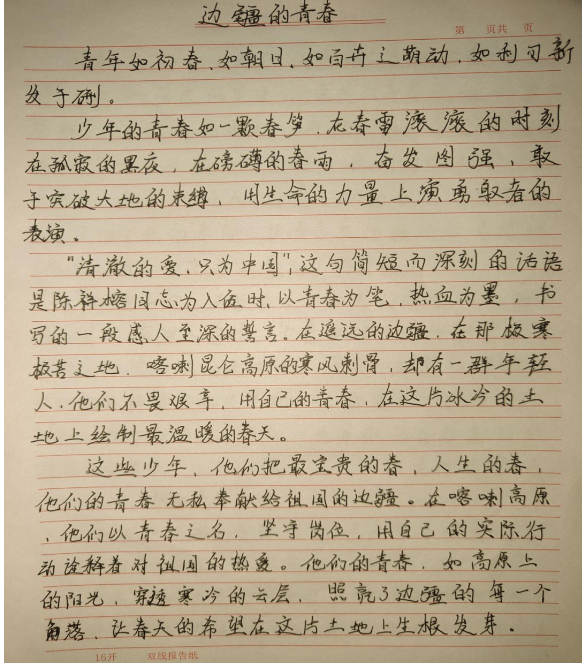 边疆的青春
第 页共 页
青年如初春、如朝日、如百卉之萌动，如利刃新
发于硎。
少年的青春如一颗春笋，在春雷滚滚的时刻
在孤寂的黑夜，在磅礴的春雨，奋发图强，敢
于突破大地的束缚，用生命的力量上演勇敢者的
表演。
“清澈的爱，只为中国”，这句简短而深刻的话语
是陈祥榕同志为入伍时，以青春为笔，热血为墨，书
写的一段感人至深的誓言。在遥远的边疆，在那极寒
极苦之地，喀喇昆仑高原的寒风刺骨，却有一群年轻
人，他们不畏艰辛，用自己的青春，在这片冰冷的土
地上绘制最温暖的春天。
这些少年，他们把最宝贵的春，人生的春，
他们的青春无私奉献给祖国的边疆。在喀喇高原
，他们以青春之名，坚守岗位，用自己的实际行
动诠释着对祖国的热爱。他们的青春，如高原上
的阳光，穿透寒冷的云层，照亮了边疆的每一个
角落，让春天的希望在这片土地上生根发芽。
16开 双线报告纸